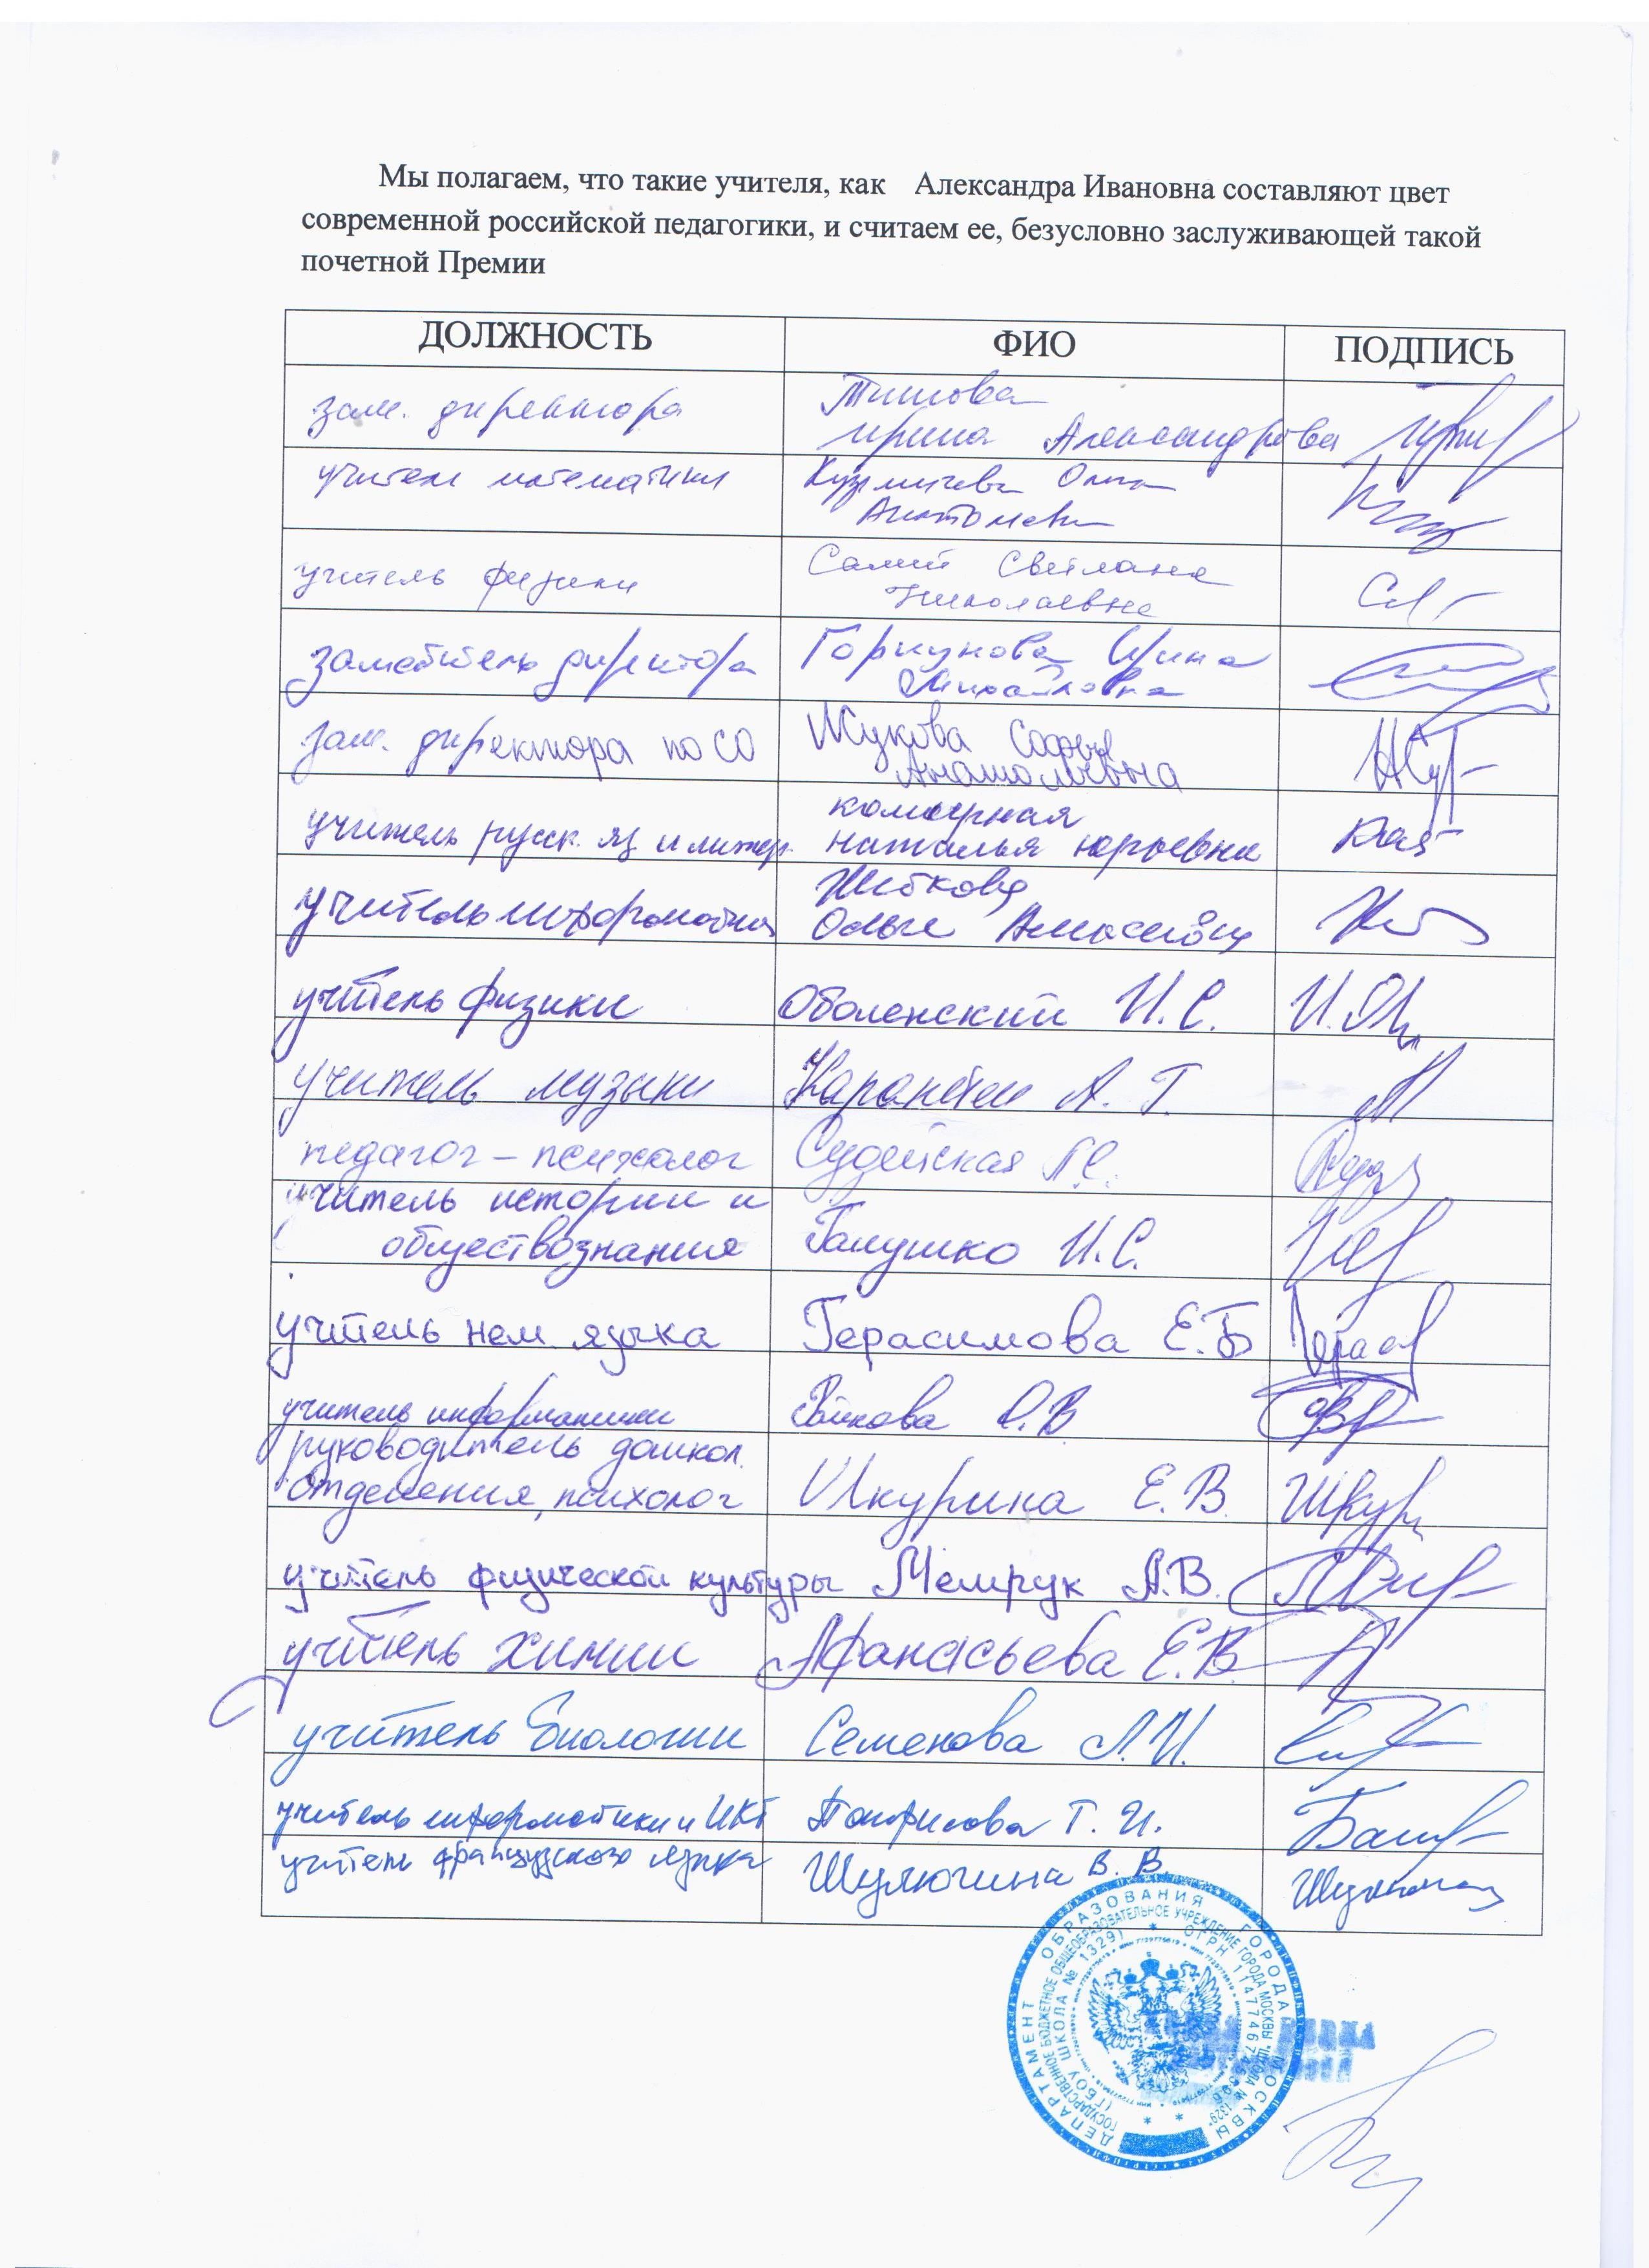 Мы полагаем, что такие учителя, как Александра Ивановна составляют цвет
современной российской педагогики, и считаем ее, безусловно заслуживающей такой
почетной Премии
ДОЛЖНОСТЬ ФИО ПОДПИСЬ
зам. директора Титова
Ирина Александровна
учитель математики Кузмичева Ольга
Анатольевна
учитель физики Салий Светлана
Николаевна
заместитель директора Горкунова Ирина
Михайловна
зам. директора по СО Жукова Софья
Анатольевна
учитель русск. яз и литер. Наталья Юрьевна
учитель информатики
Ольга Алексеевна
учитель физики Оболенский И.С.
учитель музыки А. Г.
педагог-психолог Судейская
учитель истории и
обществознания Галушко И.С.
учитель нем. языка Герасимова Е.Б
учитель информатики О.В
руководитель дошкол.
отделения, психолог Шкурина Е.В.
учитель физической культуры Мемрук А.В.
учитель химии Афанасьева Е.В.
учитель биологии Семенова Л.И.
учитель информатики и ИКТ Г. И.
учитель французского языка Шулюгина В. В.
ДЕПАРТАМЕНТ ОБРАЗОВАНИЯ ГОРОДА МОСКВЫ
ГОСУДАРСТВЕННОЕ БЮДЖЕТНОЕ ОБЩЕОБРАЗОВАТЕЛЬНОЕ УЧРЕЖДЕНИЕ ГОРОДА МОСКВЫ "ШКОЛА № 1329"
(ГБОУ ШКОЛА № 1329)